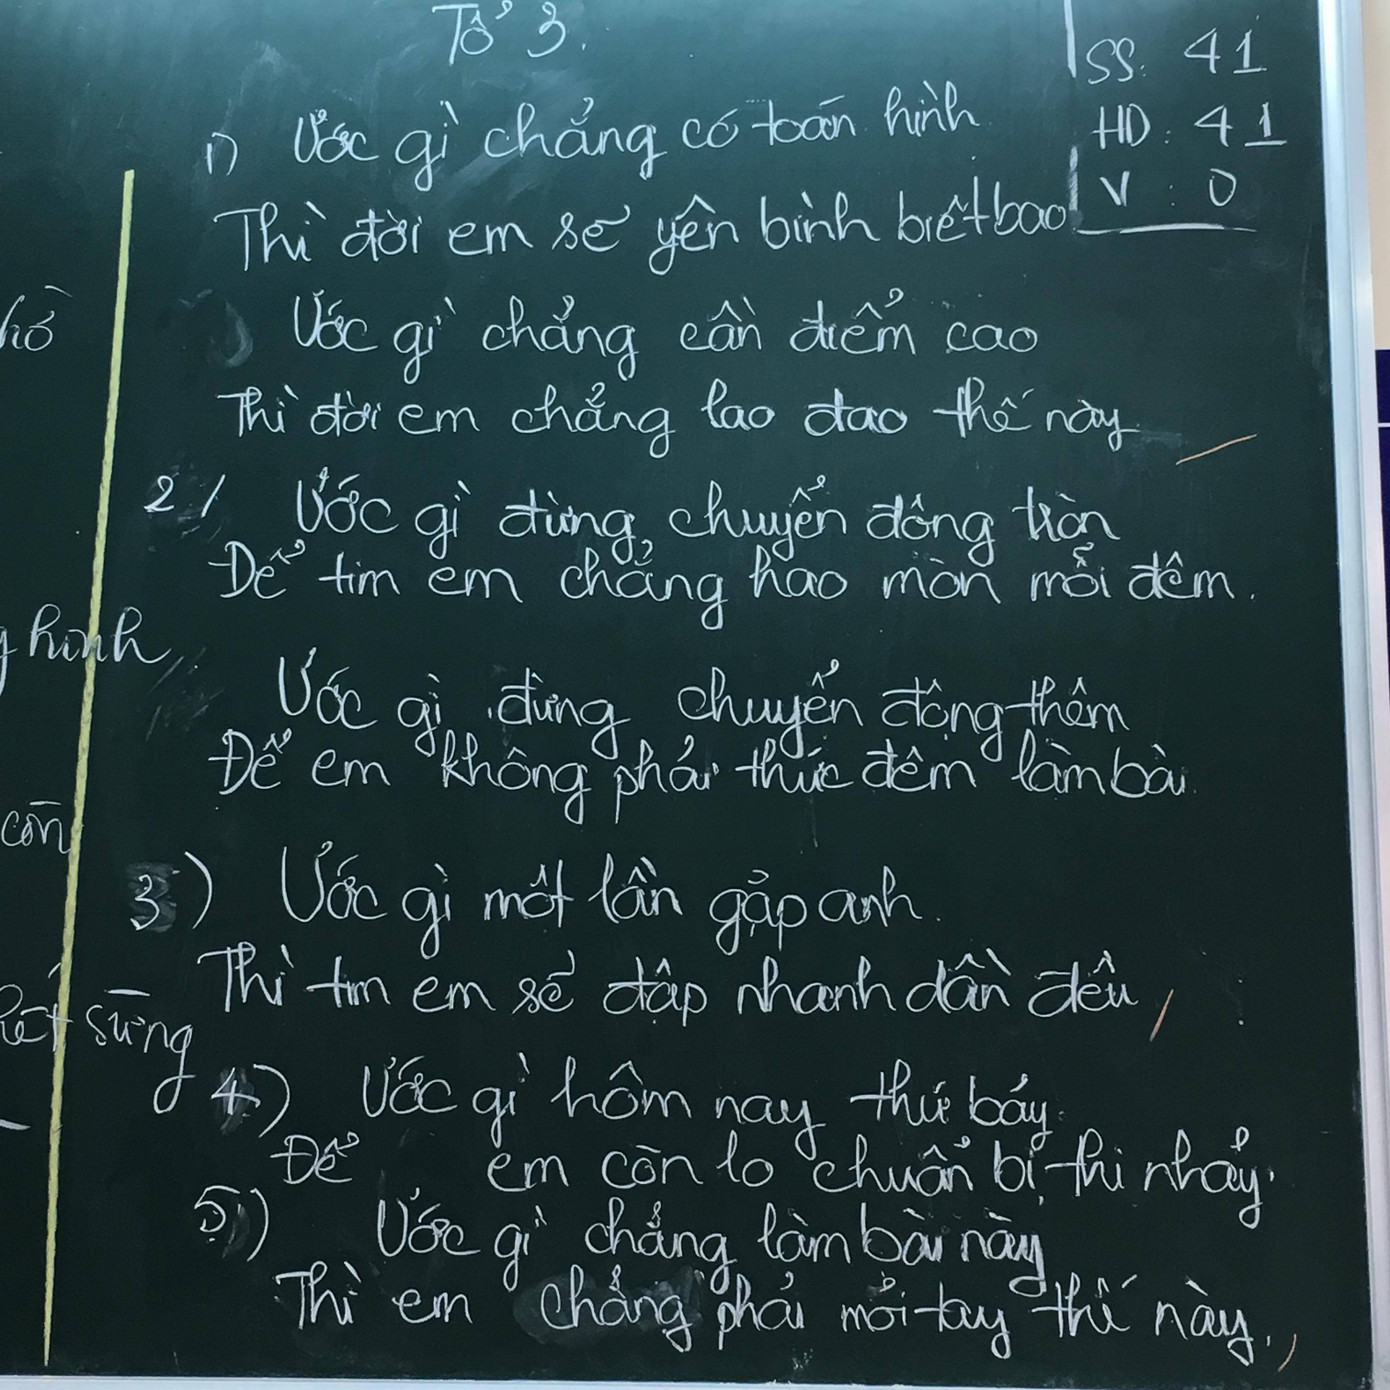 Tổ 3.
SS: 41
HD: 41
V: 0
1) Ước gì chẳng có toán hình
Thì đời em sẽ yên bình biết bao
Ước gì chẳng cần điểm cao
Thì đời em chẳng lao đao thế này
2/ Ước gì đừng, chuyển động tròn
Để tim em chẳng hao mòn mỗi đêm.
Ước gì đừng chuyển động thêm
Để em không phải thức đêm làm bài
3) Ước gì một lần gặp anh.
Thì tim em sẽ đập nhanh dần đều
4) Ước gì hôm nay thứ bảy
Để em còn lo chuẩn bị thi nhảy.
5) Ước gì chẳng làm bài này
Thì em chẳng phải mỏi tay thế này.
hình
còn
sừng